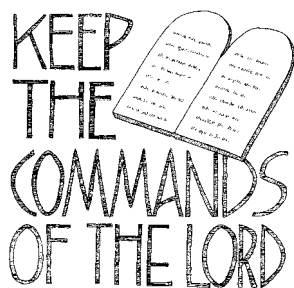 KEEP
THE
COMMANDS
OF THE LORD